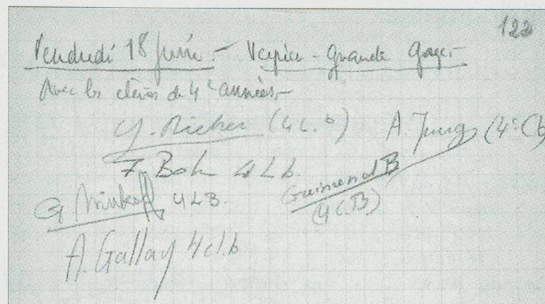 122
Vendredi 18 juin. - Veyrier - grande gorge -
Avec les élèves de 4e années -
Y. Richer (4 L.b) A. Jung (4e Cb)
F. Boh 4 Lb.
G 4 L B. Guimenot B
(4 C.B)
A. Gallay 4 cl.b